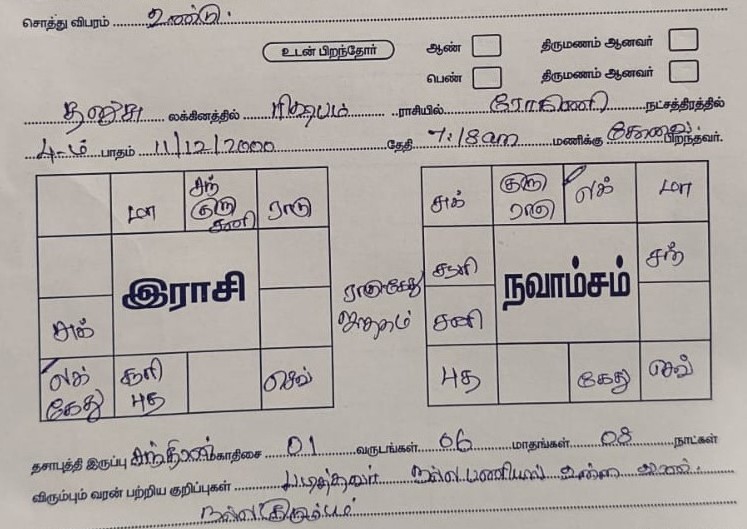 சொத்து விபரம் உண்டு.
உடன் பிறந்தோர் ஆண் திருமணம் ஆனவர்
பெண் திருமணம் ஆனவர்
தனுசு லக்கினத்தில் ரிஷபம் ராசியில் ரோகிணி நட்சத்திரத்தில்
4-ம் பாதம் 11/12/2000 தேதி 7:18am மணிக்கு பிறந்தவர்.
மா சந் குரு சனி ராகு
சுக் குரு ராகு லக் மா
இராசி
சுக்
ராகு கேது ஜாதகம்
சூரி நவாம்சம் சந்
சனி
லக் கேது சூரி புத செவ்
புத கேது செவ்
தசாபுத்தி இருப்பு சந்திரன் மகாதிசை 01 வருடங்கள் 06 மாதங்கள் 08 நாட்கள்
விரும்பும் வரன் பற்றிய குறிப்புகள் படித்தவர் நல்ல பணியில் உள்ள வரன்.
நல்ல குடும்பம்